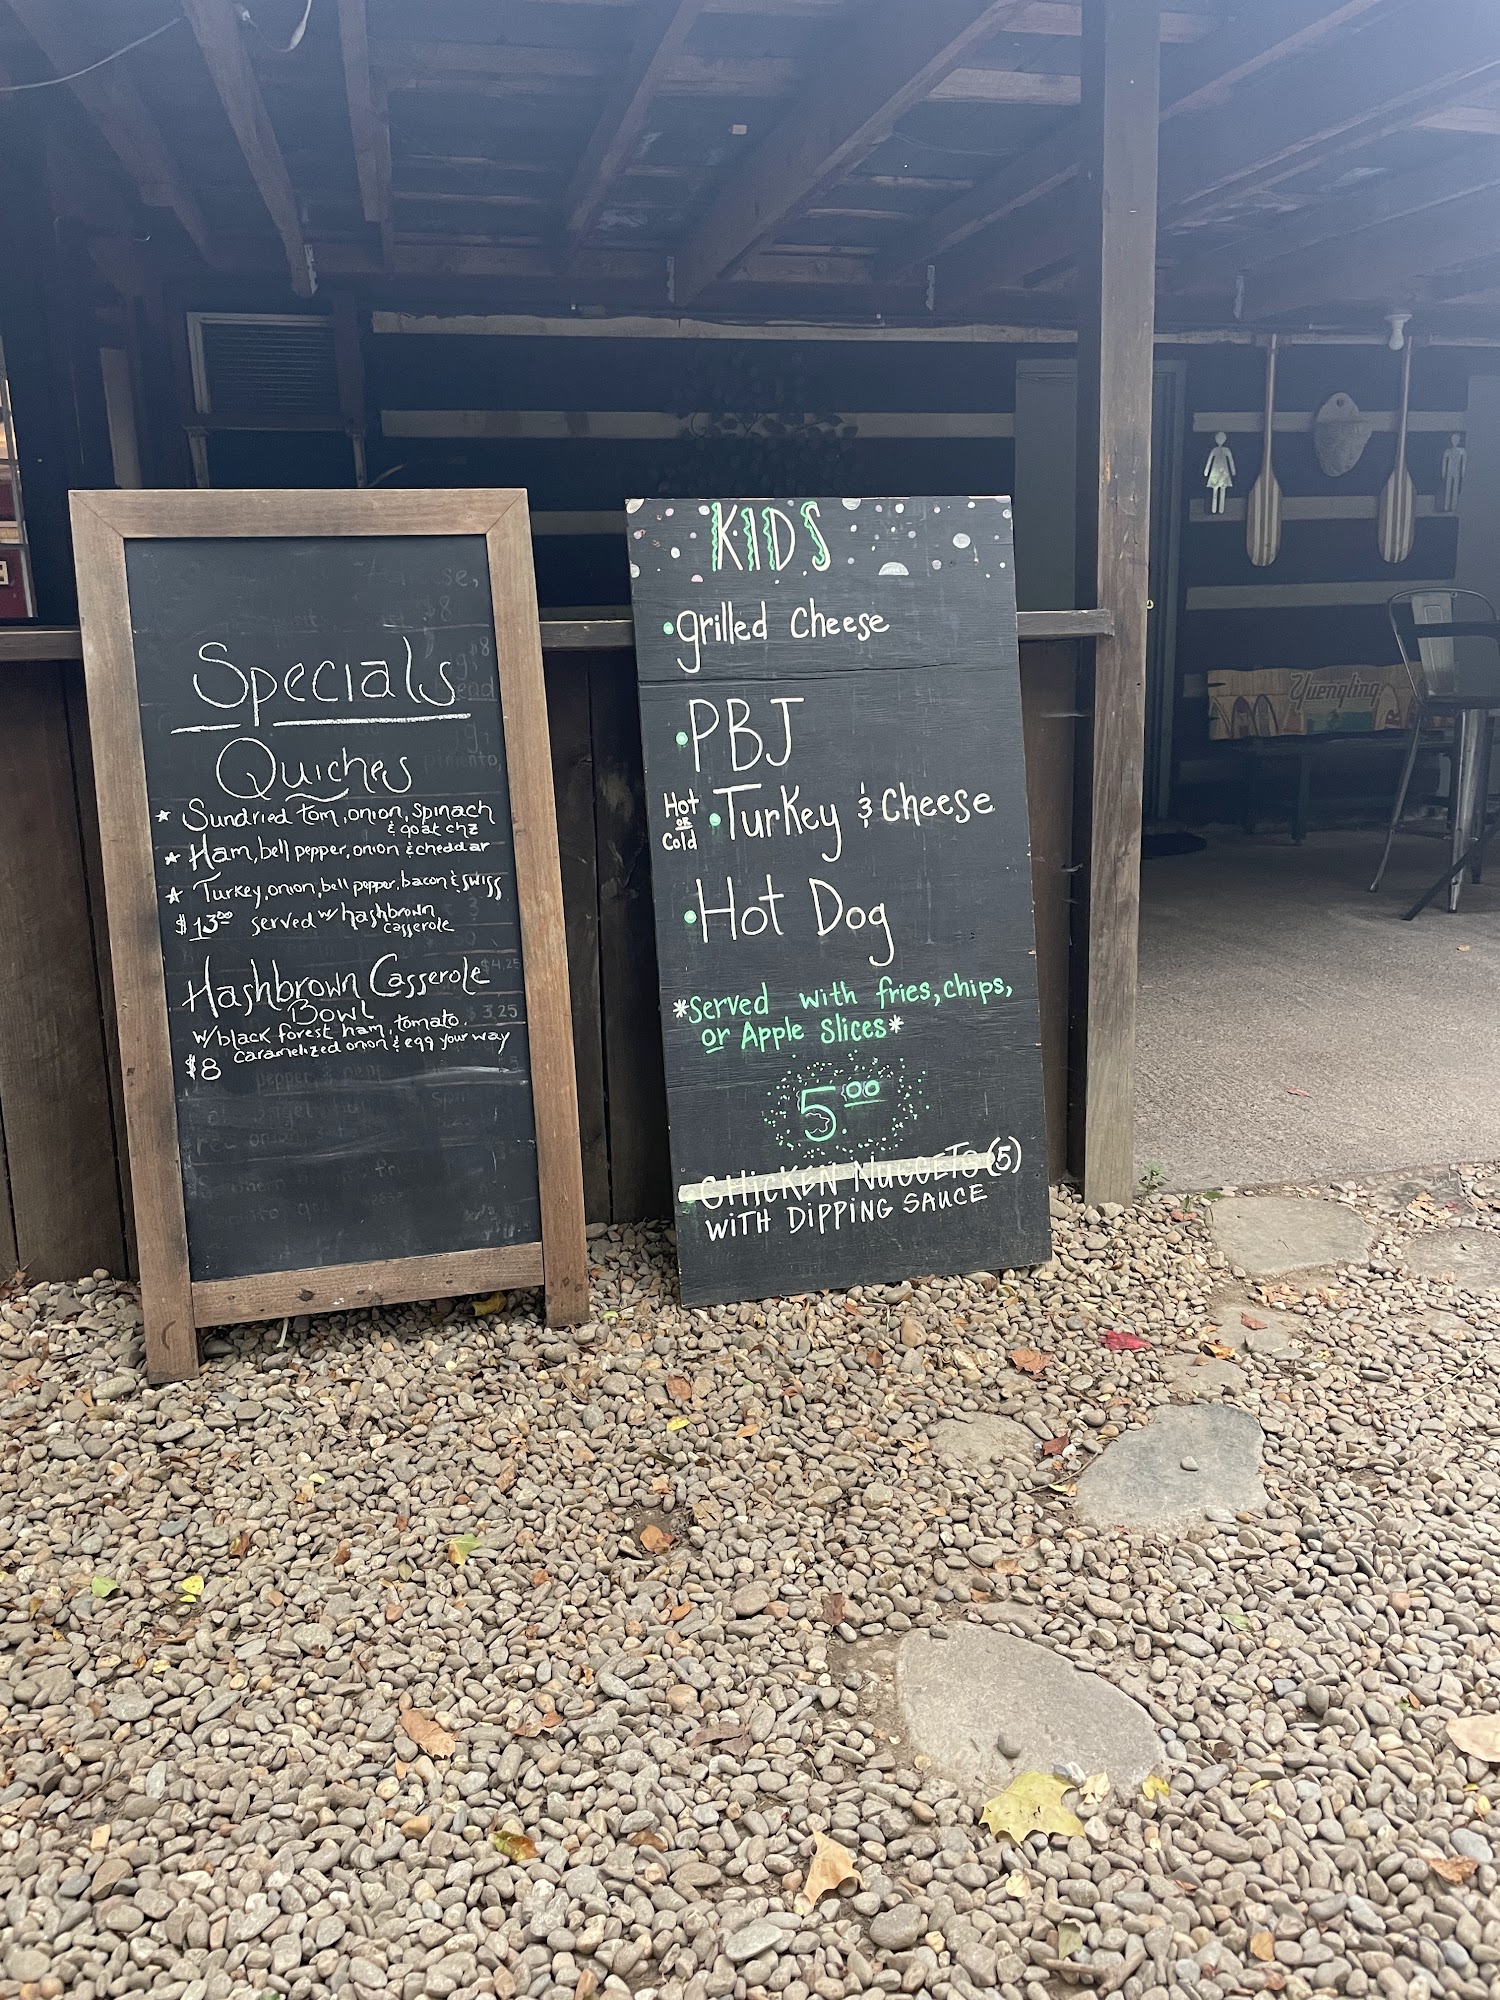 Specials
Quiches
* Sundried tom, onion, spinach
& goat chz
* Ham, bell pepper, onion & cheddar
* Turkey, onion, bell pepper, bacon & swiss
$13.00 served w/ hashbrown
casserole
Hashbrown Casserole
Bowl
w/black forest ham, tomato,
caramelized onion & egg your way
$8
$4.25
$3.25
KIDS
• grilled Cheese
• PBJ
Hot
or
Cold
• Turkey & Cheese
• Hot Dog
*Served with fries, chips,
or Apple Slices*
5.00
CHICKEN NUGGETS (5)
WITH DIPPING SAUCE
Yuengling